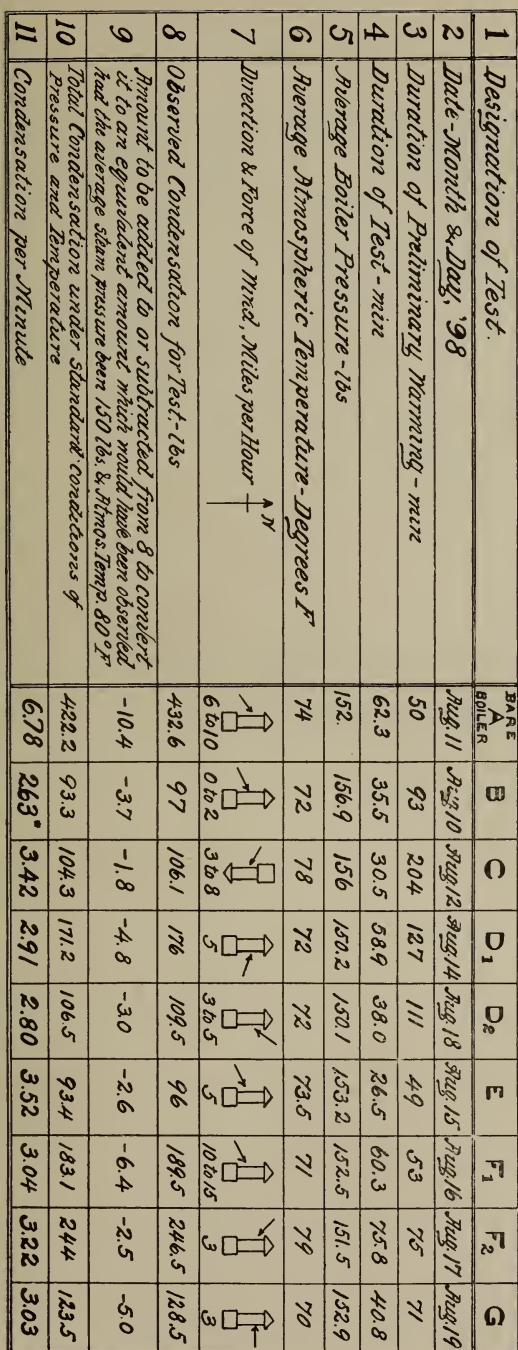 1 Designation of Test. BARE A BOILER B C D1 D2 E F1 F2 G
2 Date-Month & Day, '98 Aug.11 Aug.10 Aug.12 Aug.14 Aug.18 Aug.15 Aug.16 Aug.17 Aug.19
3 Duration of Preliminary Warming-min 50 93 204 127 111 49 53 75 71
4 Duration of Test-min 62.3 35.5 30.5 58.9 38.0 26.5 60.3 75.8 40.8
5 Average Boiler Pressure-lbs 152. 156.9 156 150.2 150.1 153.2 152.5 151.5 152.9
6 Average Atmospheric Temperature-Degrees F 74 72 78 72 72 73.5 71 79 70
7 Direction & Force of Wind, Miles per Hour N 6 to 10 0 to 2 3 to 8 5 3 to 5 5 10 to 15 3 3
8 Observed Condensation for Test-lbs 432.6 97 106.1 176 109.5 96 189.5 246.5 128.5
9 Amount to be added to or subtracted from 8 to convert
it to an equivalent amount which would have been observed
had the average steam pressure been 150 lbs. & Atmos. Temp. 80°F -10.4 -3.7 -1.8 -4.8 -3.0 -2.6 -6.4 -2.5 -5.0
10 Total Condensation under standard conditions of
Pressure and Temperature 422.2 93.3 104.3 171.2 106.5 93.4 183.1 244 123.5
11 Condensation per Minute 6.78 2.63* 3.42 2.91 2.80 3.52 3.04 3.22 3.03